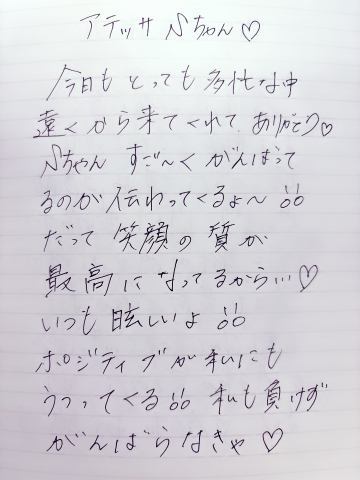 アテッサ Nちゃん♡
今日も とっても 多忙な中
遠くから来てくれて、ありがとう♡
Nちゃん すご〜くがんばって
るのが伝わってくるよ〜 !!
だって 笑顔の 質が
最高になってるから…♡
いつも 眩しいよ !!
ポジティブが私にも
うつってくる!! 私も負けず
がんばらなきゃ♡